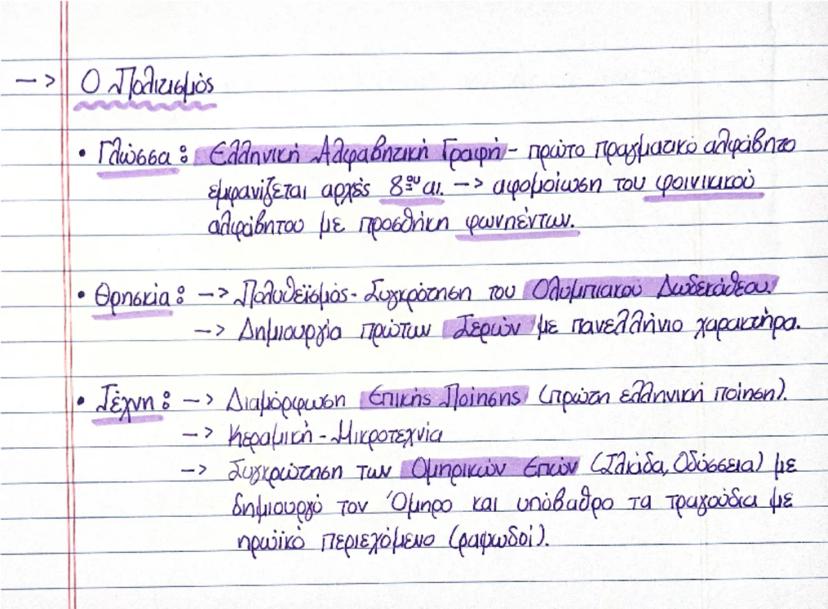 -> Ο Πολιτισμός
• Γλώσσα: Ελληνική Αλφαβητική Γραφή - πρώτο πραγματικό αλφάβητο
εμφανίζεται αρχές 8ου αι. -> αφομοίωση του φοινικικού
αλφάβητου με προσθήκη φωνηέντων.
• Θρησκία: -> Πολυθεϊσμός - Συγκρότηση του Ολυμπιακού Δωδεκάθεου.
-> Δημιουργία πρώτων Ιερών με πανελλήνιο χαρακτήρα.
• Τέχνη: -> Διαμόρφωση Επικής Ποίησης (πρώτη ελληνική ποίηση).
-> Κεραμική - Μικροτεχνία
-> Συγκρώτηση των Ομηρικών Επών (Ιλιάδα, Οδύσσεια) με
δημιουργό τον Όμηρο και υπόβαθρο τα τραγούδια με
ηρωϊκό περιεχόμενο (ραψωδοί).